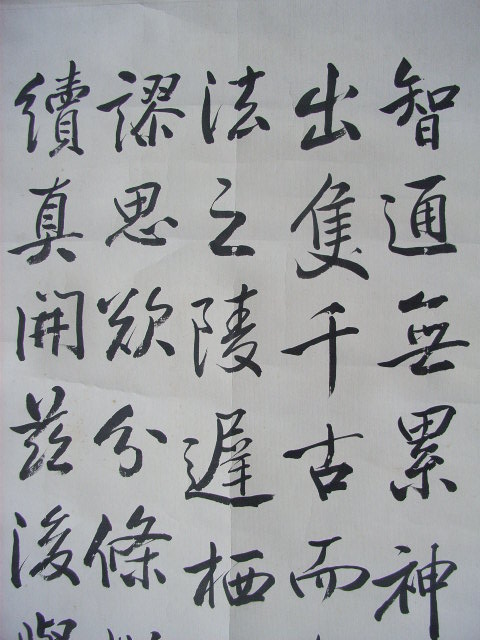 智通無累神
出隻千古而
法之陵遲栖
謬思欲分條
續真開茲後